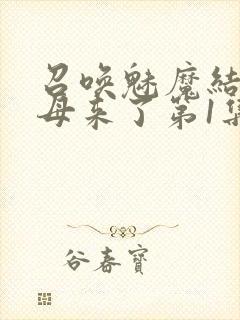 召唤魅魔结
母来了第1集
谷春寶